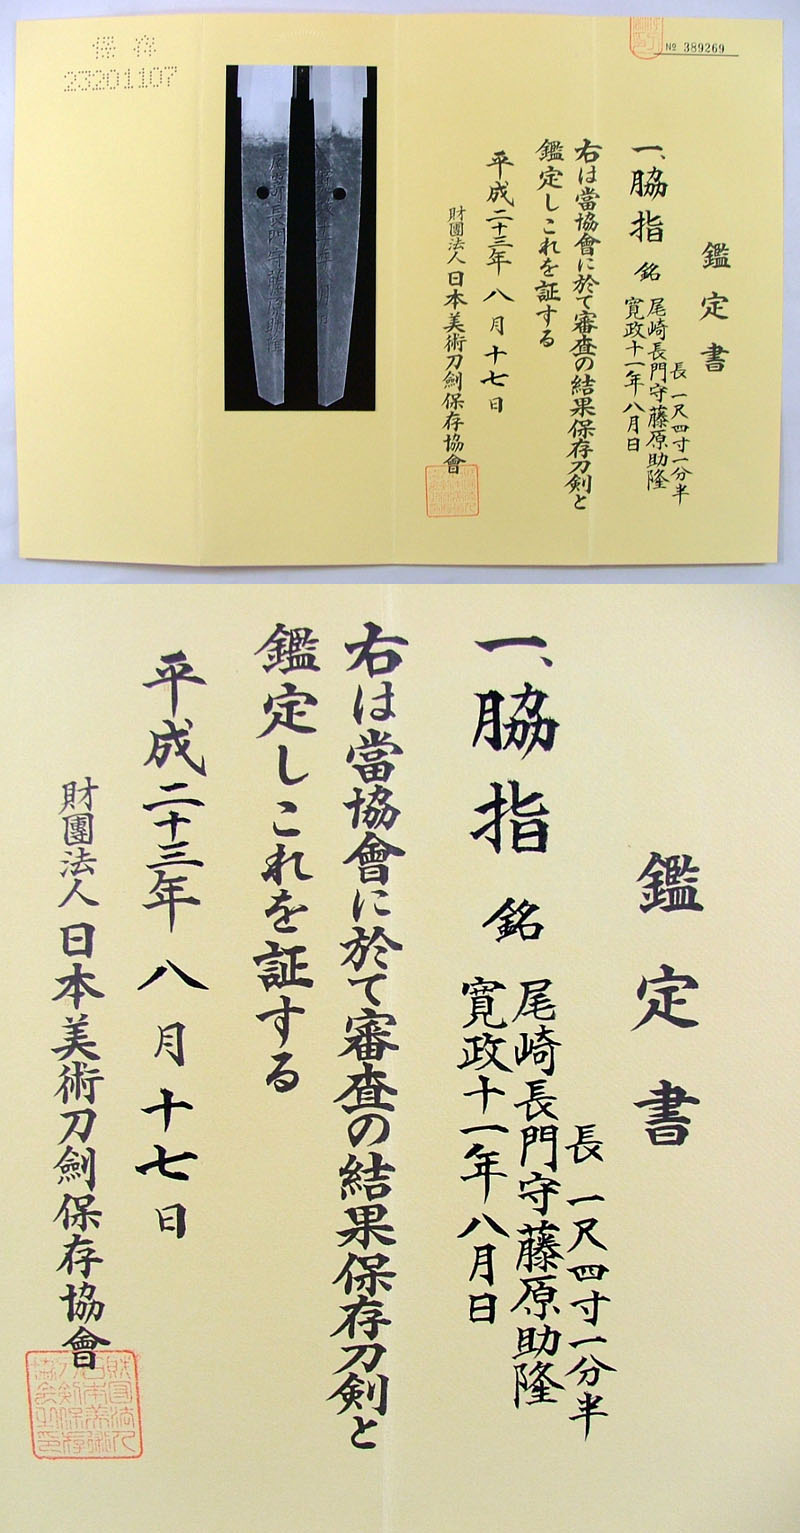 保存
23201107
№ 389269
鑑定書
一、脇指 銘 尾崎長門守藤原助隆
寛政十一年八月日
長 一尺四寸一分半
右は當協會に於て審査の結果保存刀剣と
鑑定しこれを証する
平成二十三年八月十七日
財團法人日本美術刀劍保存協會
尾崎長門守藤原助隆
鑑定書
長 一尺四寸一分半
一、脇指 銘 尾崎長門守藤原助隆
寛政十一年八月日
右は當協會に於て審査の結果保存刀剣と
鑑定しこれを証する
平成二十三年八月十七日
財團法人日本美術刀劍保存協會